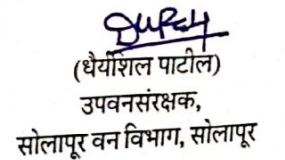 (धैर्यशिल पाटील)
उपवनसंरक्षक,
सोलापूर वन विभाग, सोलापूर